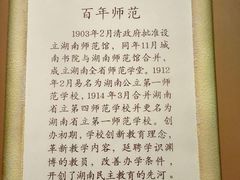 百年师范
1903年2月清政府批准设
立湖南师范馆，同年11月城
南书院与湖南师范馆合并，
成立湖南全省师范学堂。1912
年2月易名为湖南公立第一师
范学校，1914年3月合并湖南
省立第四师范学校并更名为
湖南省立第一师范学校。创
办初期，学校创新教育理念、
革新教学内容、延聘学识渊
博的教员、改善办学条件，
开创了湖南民主教育的先河。